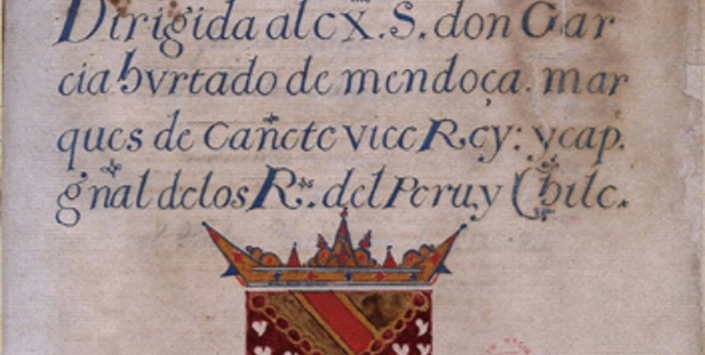 Dirigida al ex.mo S. don Gar
cia hvrtado de mendoça. mar
ques de cañete vice Rey: y cap.
gñal delos R.s del Peru, y Chile.